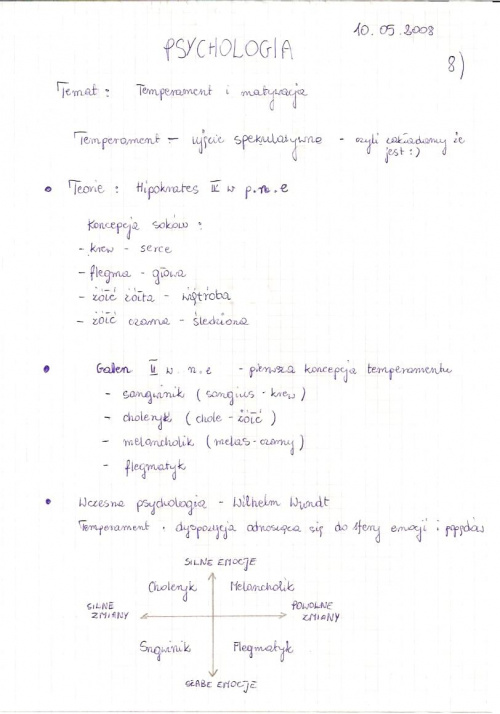 10.05.2008
PSYCHOLOGIA
8)
Temat: Temperament i motywacja
Temperament - ujęcie spekulatywne - czyli zakładamy że
jest :)
• Teorie: Hipokrates IV w p.n.e
Koncepcja soków:
- krew - serce
- flegma - głowa
- żółć żółta - wątroba
- żółć czarna - śledziona
• Galen II w n.e - pierwsza koncepcja temperamentu
- sangwinik (sangius - krew)
- choleryk (chole - żółć)
- melancholik (melas - czarny)
- flegmatyk
• Wczesna psychologia - Wilhelm Wundt
Temperament - dyspozycja odnosząca się do sfery emocji i popędów
SILNE EMOCJE
Choleryk Melancholik
SILNE ZMIANY POWOLNE ZMIANY
Sngwinik Flegmatyk
SŁABE EMOCJE